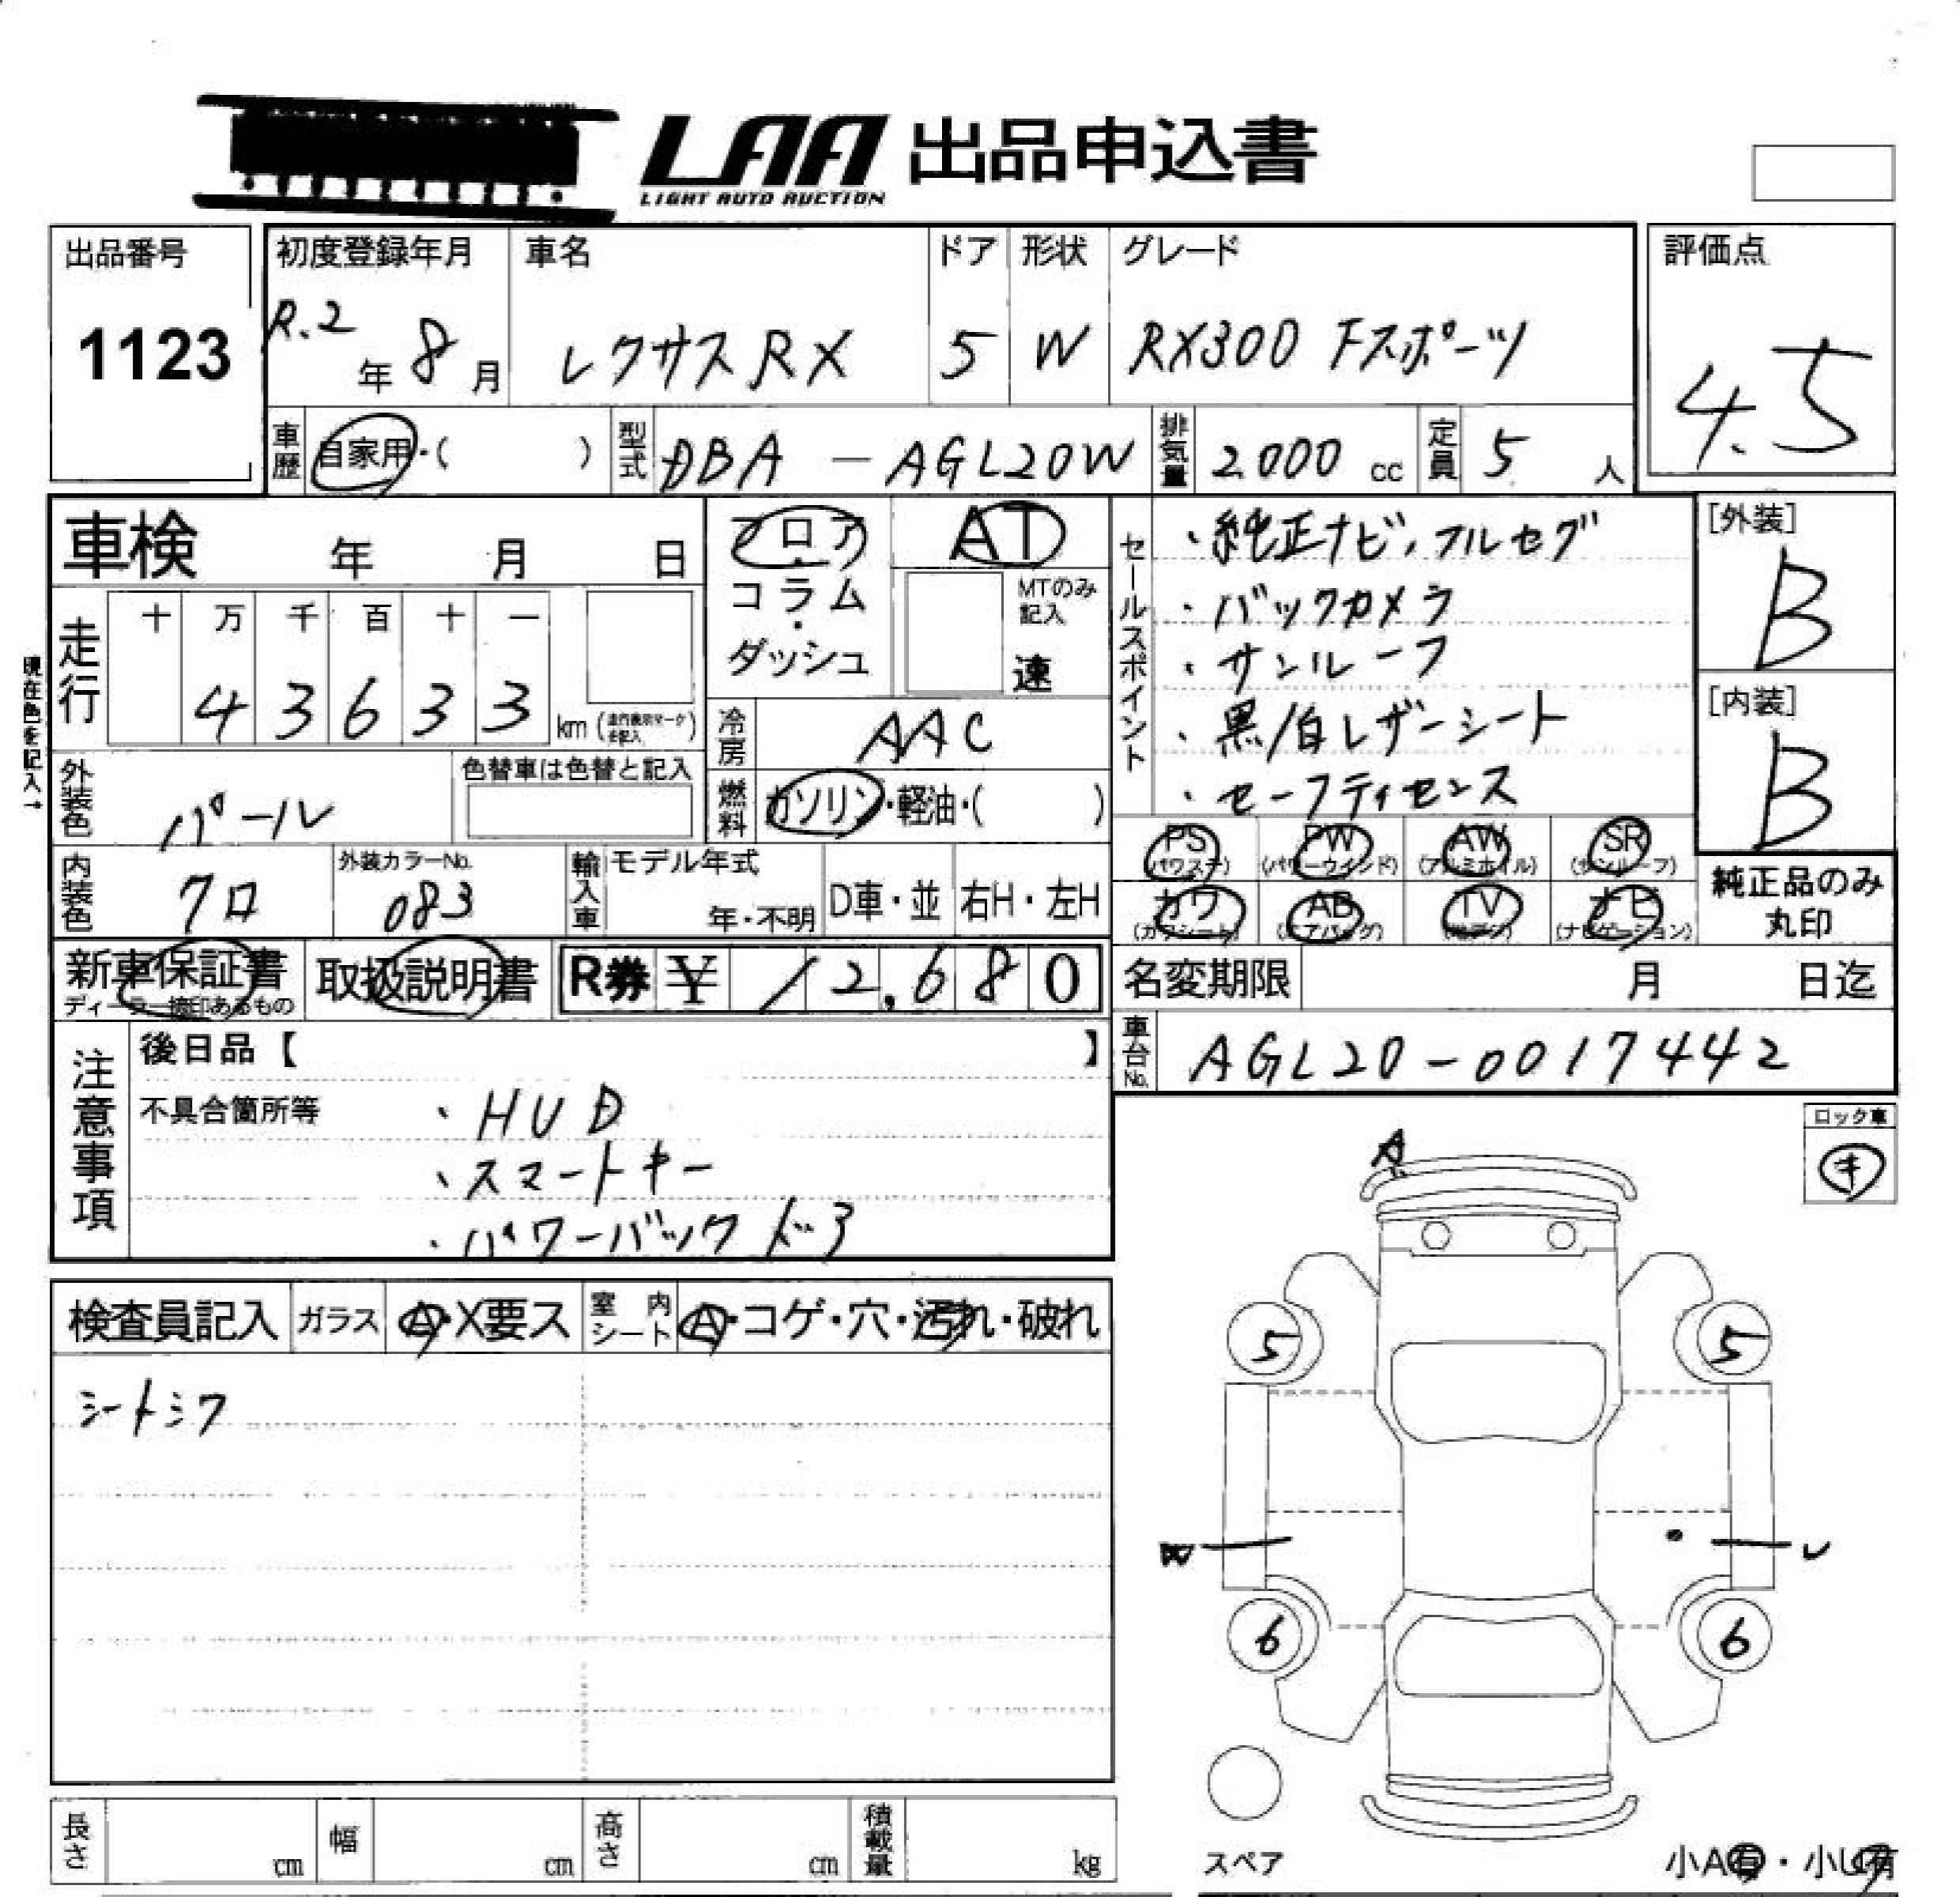 LAA 出品申込書
LIGHT AUTO AUCTION
出品番号 初度登録年月 車名 ドア 形状 グレード 評価点
1123 R.2年 8月 レクサスRX 5 W RX300 Fスポーツ 4.5
車歴 自家用・( ) 型式 DBA - AGL20W 排気量 2000 cc 定員 5 人
車検 年 月 日 フロア・コラム・ダッシュ AT
MTのみ記入 速
走行 十 万 千 百 十 一
4 3 6 3 3 km
現在色を記入→
冷房 AAC
外装色 パール 色替車は色替と記入
燃料 ガソリン・軽油・( )
セールスポイント
・純正ナビ、フルセグ
・バックカメラ
・サンルーフ
・黒/白レザーシート
・セーフティセンス
[外装]
B
[内装]
B
PS (パワステ) PW (パワーウインド) AW (アルミホイル) SR (サンルーフ)
カワ (カワシート) AB (エアバッグ) TV ナビ (ナビゲーション)
純正品のみ
丸印
内装色 クロ 外装カラーNo. 083 輸入車 モデル年式 年・不明 D車・並 右H・左H
新車保証書 取扱説明書 R券 ¥ 12,680
ディーラー捺印あるもの
名変期限 月 日迄
車台No. AGL20-0017442
注意事項
後日品【 】
不具合箇所等 ・HUD
・スマートキー
・パワーバックドア
ロック車
キ
検査員記入 ガラス A・X要ス 室内シート A・コゲ・穴・汚れ・破れ
シートシワ
A
5 5
W U
6 6
スペア
小A有・小U有
長さ cm 幅 cm 高さ cm 積載量 kg